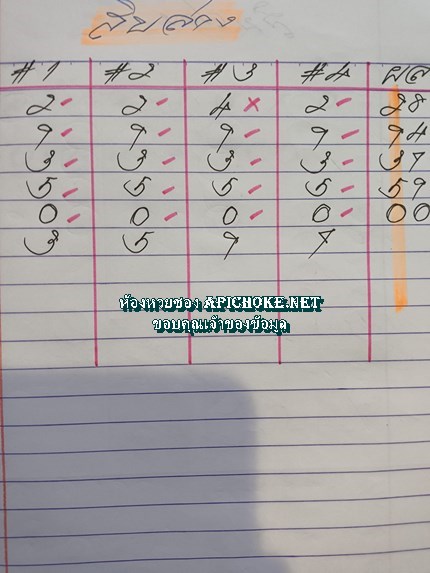 #1 #2 #3 #4 ผล
2 2 4 2 28
9 9 9 9 94
3 3 3 3 37
5 5 5 5 59
0 0 0 0 00
3 5 9 7
ห้องหวยซอง APICHOKE.NET
ขอบคุณเจ้าของข้อมูล